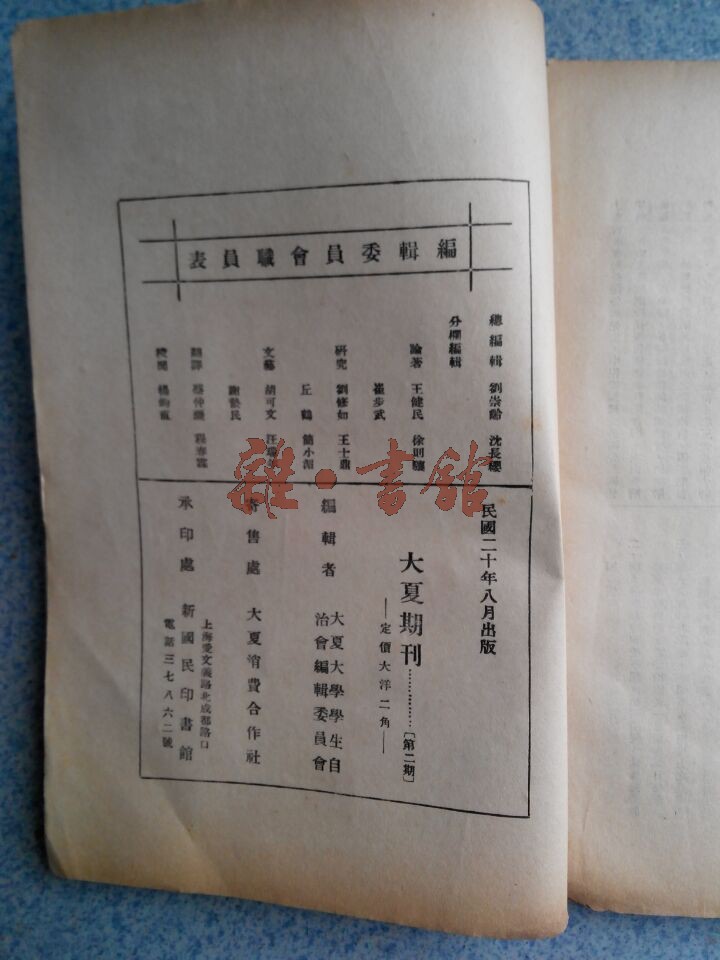 編輯委員會職員表
總編輯 劉崇齡 沈長纓
分欄編輯
論著 王健民 徐則驤
崔步武
研究 劉修如 王士鼎
丘鶴 簡小湄
文藝 胡可文
民
翻譯
楊
民國二十年八月出版
大夏期刊…………〔第二期〕
—定價大洋二角—
編輯者 大夏大學學生自
治會編輯委員會
寄售處 大夏消費合作社
承印處 新國民印書館
上海愛文義路北成都路口
電話三七八六二號
雜·書館